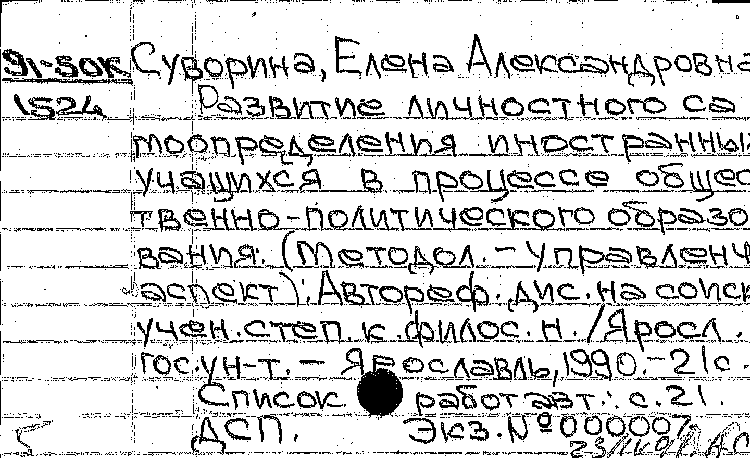 91-50К Суворина, Елена Александровна
1524 Развитие личностного са
моопределения иностранны
учащихся в процессе общес
твенно-политического образо
вания: (Методол. - управленч
аспект): Автореф. дис. на соиск
учен. степ. к. филос. н. / Яросл.
гос. ун-т. - Ярославль, 1990. - 21 с.
Список работ авт.: с. 21.
5 ДСП. Экз. № 000007